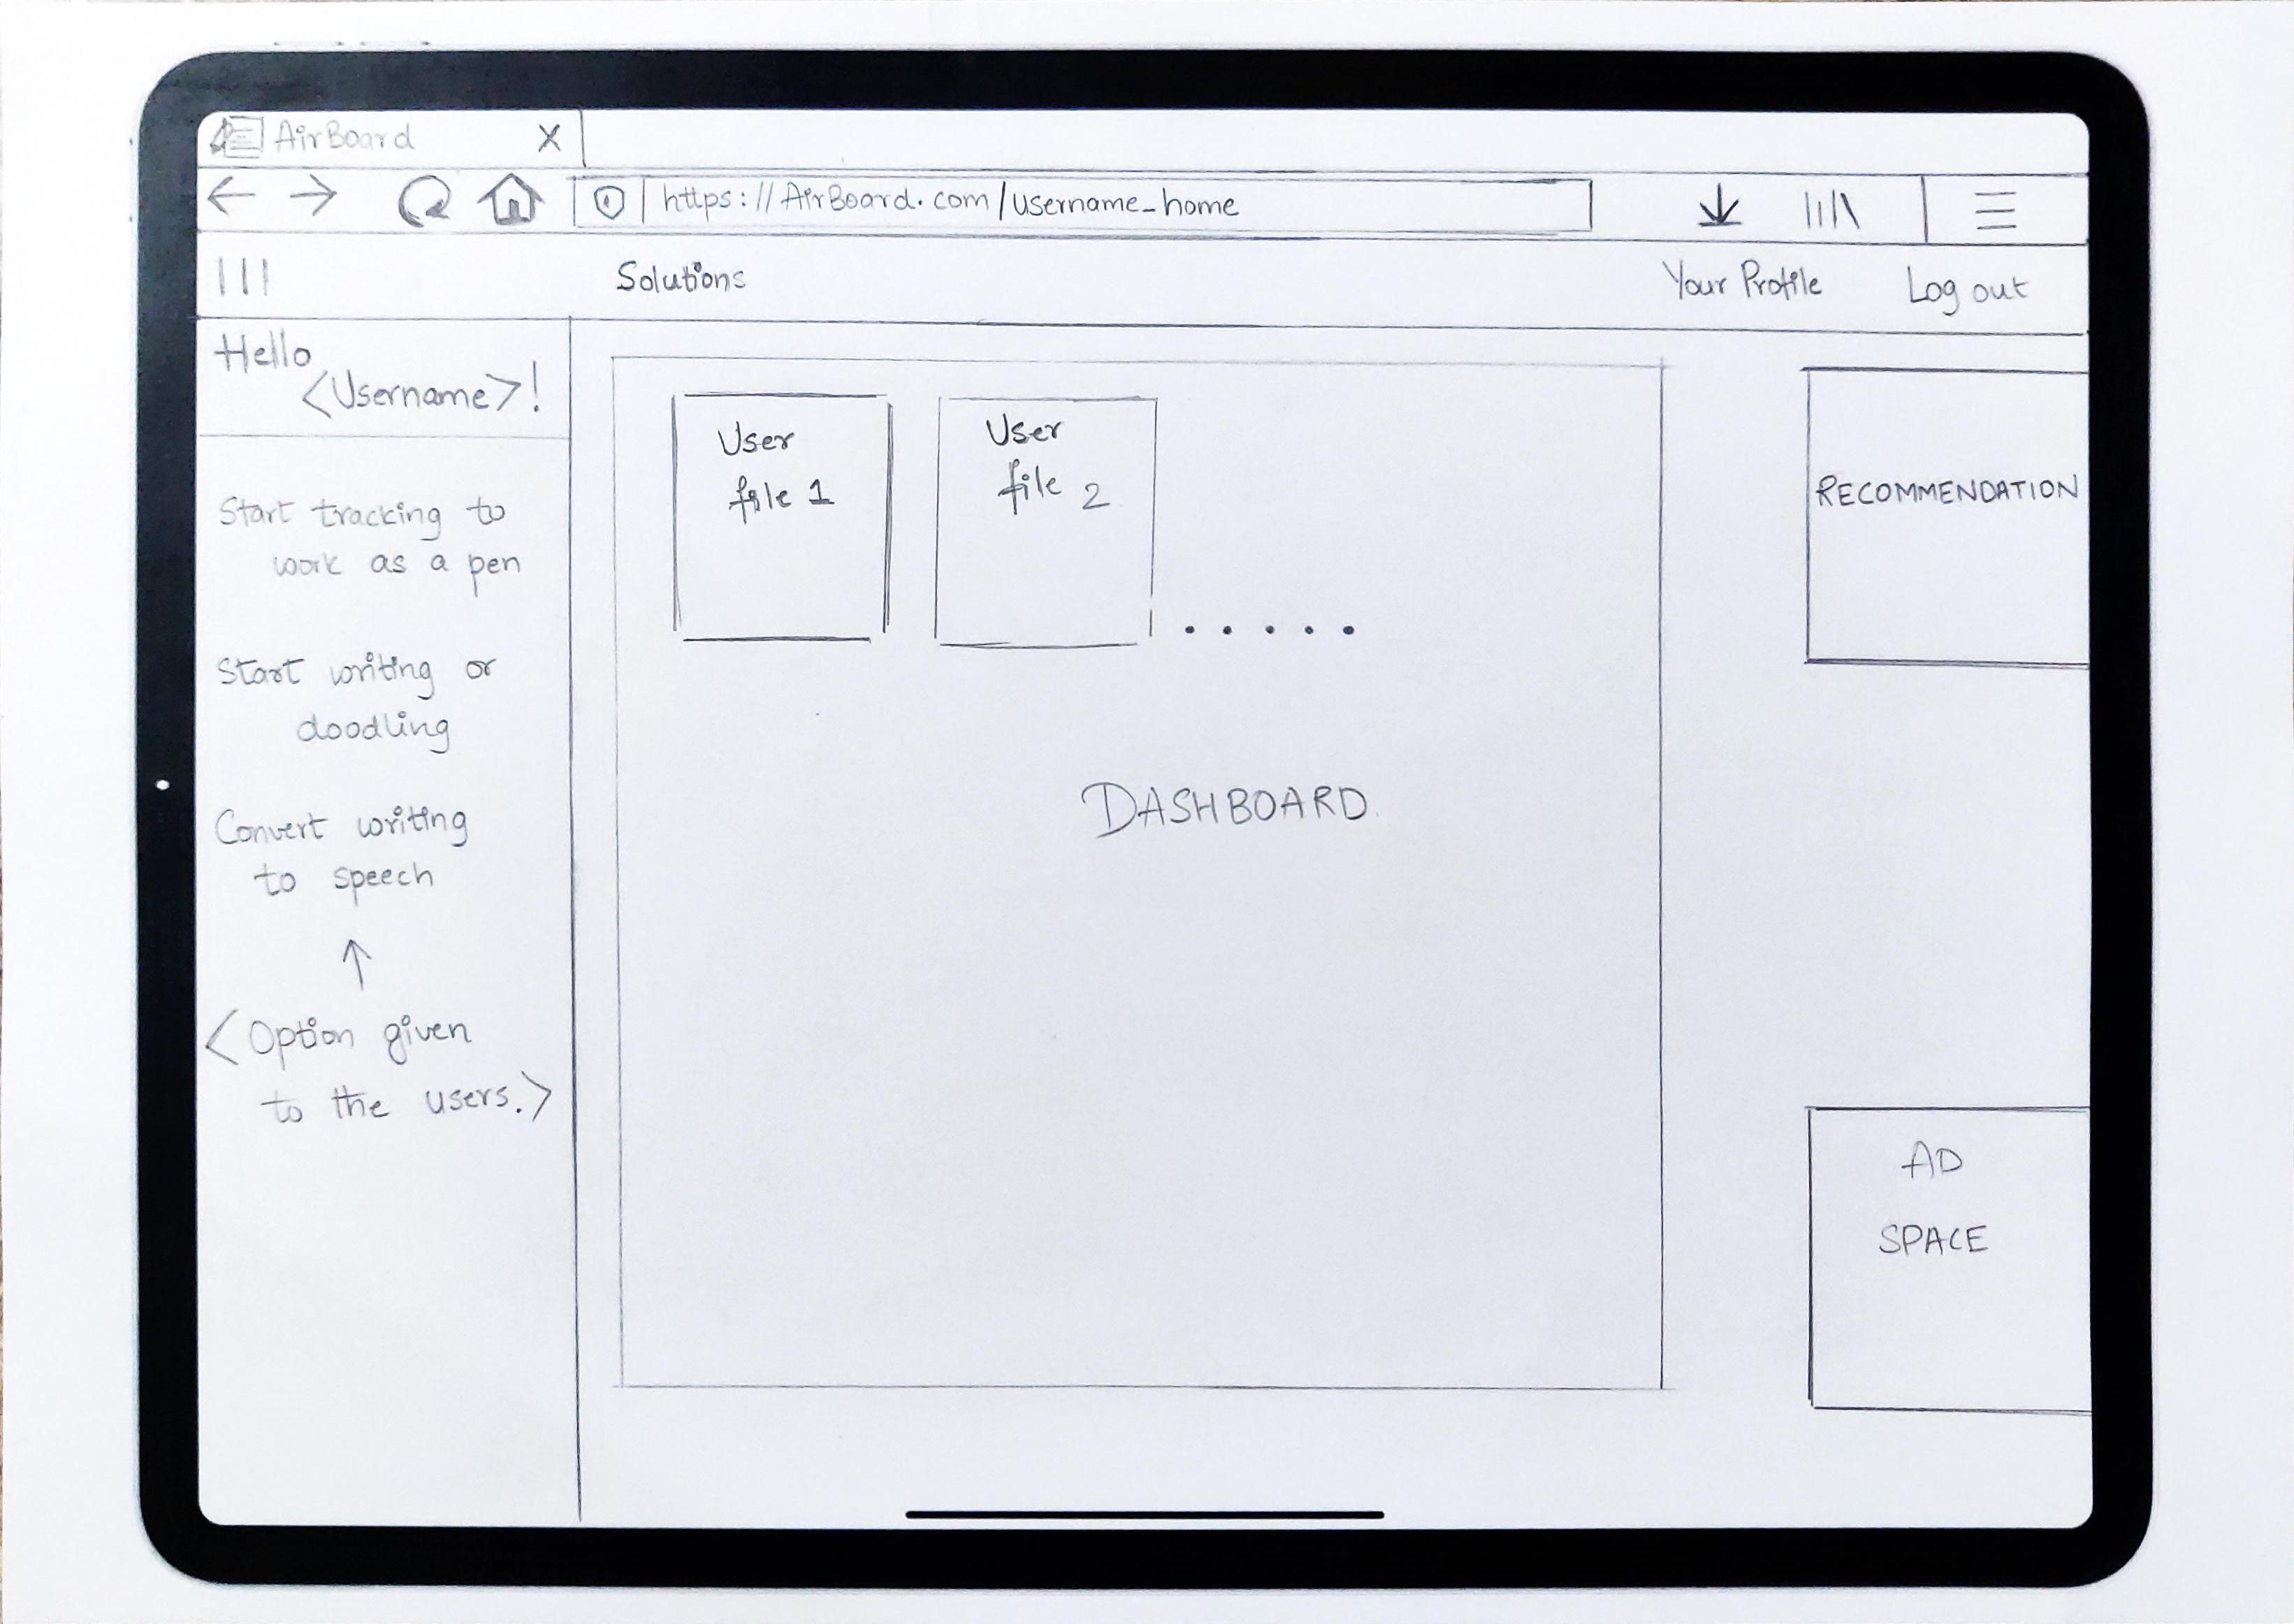 AirBoard X
https://AirBoard.com/username_home
Solutions
Your Profile
Log out
Hello
<Username>!
Start tracking to
work as a pen
Start writing or
doodling
Convert writing
to speech
<Option given
to the users.>
User
file 1
User
file 2
.....
DASHBOARD.
RECOMMENDATION
AD
SPACE